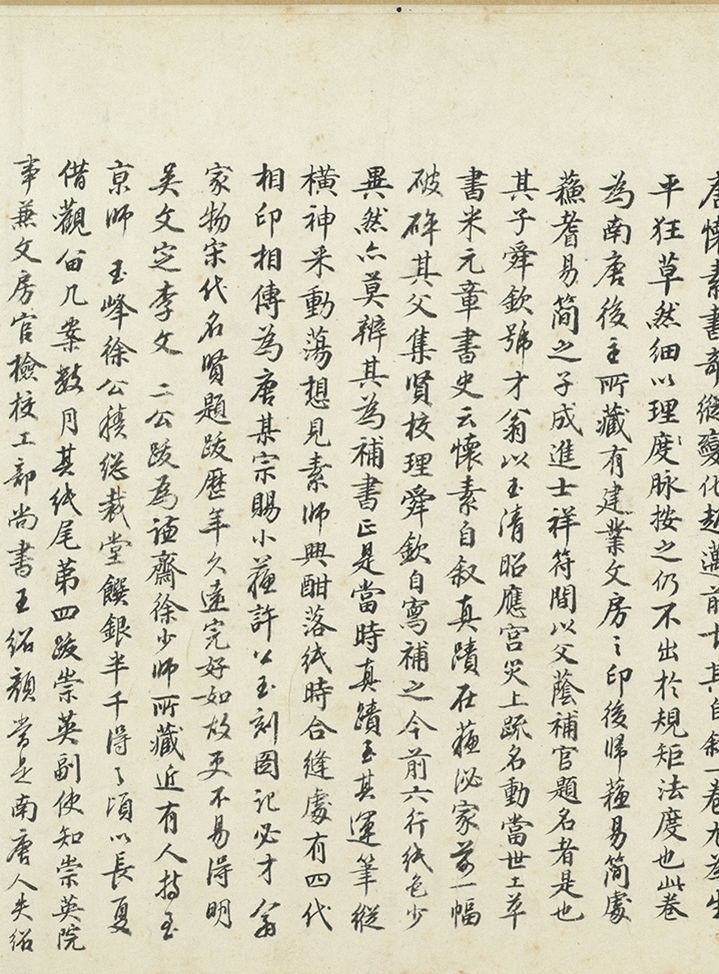 唐懷素書奇縱變化超邁前古其自敘一卷尤為生
平狂草然細以理度脉按之仍不出於規矩法度也此卷
為南唐後主所藏有建業文房之印後歸蘓易簡處
蘓耆易簡之子成進士祥符間以父蔭補官題名者是也
其子舜欽號才翁以玉清昭應宮災上疏名動當世工草
書米元章書史云懷素自叙真蹟在蘓泌家前一幅
破碎其父集賢校理舜欽自寫補之今前六行紙色少
異然亦莫辨其為補書正是當時真蹟至其運筆縱
橫神采動蕩想見素師興酣落紙時合縫處有四代
相印相傳為唐某宗賜小蘓許公玉刻圖記必才翁
家物宋代名賢題跋歷年久遠完好如故更不易得明
吳文定李文 二公跋為謙齋徐少師所藏近有人持至
京師 玉峰徐公積總裁堂饌銀半千得之頃以長夏
借觀留几案數月其紙尾第四跋崇英副使知崇英院
事兼文房官檢校工部尚書王紹顏當是南唐人失紹